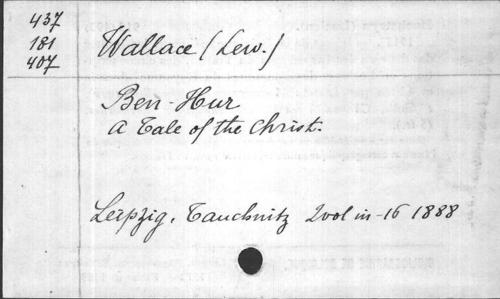 437
181
407
Wallace (Lew.)
Ben-Hur
A Tale of the Christ.
Leipzig, Tauchnitz 2 vol in-16 1888